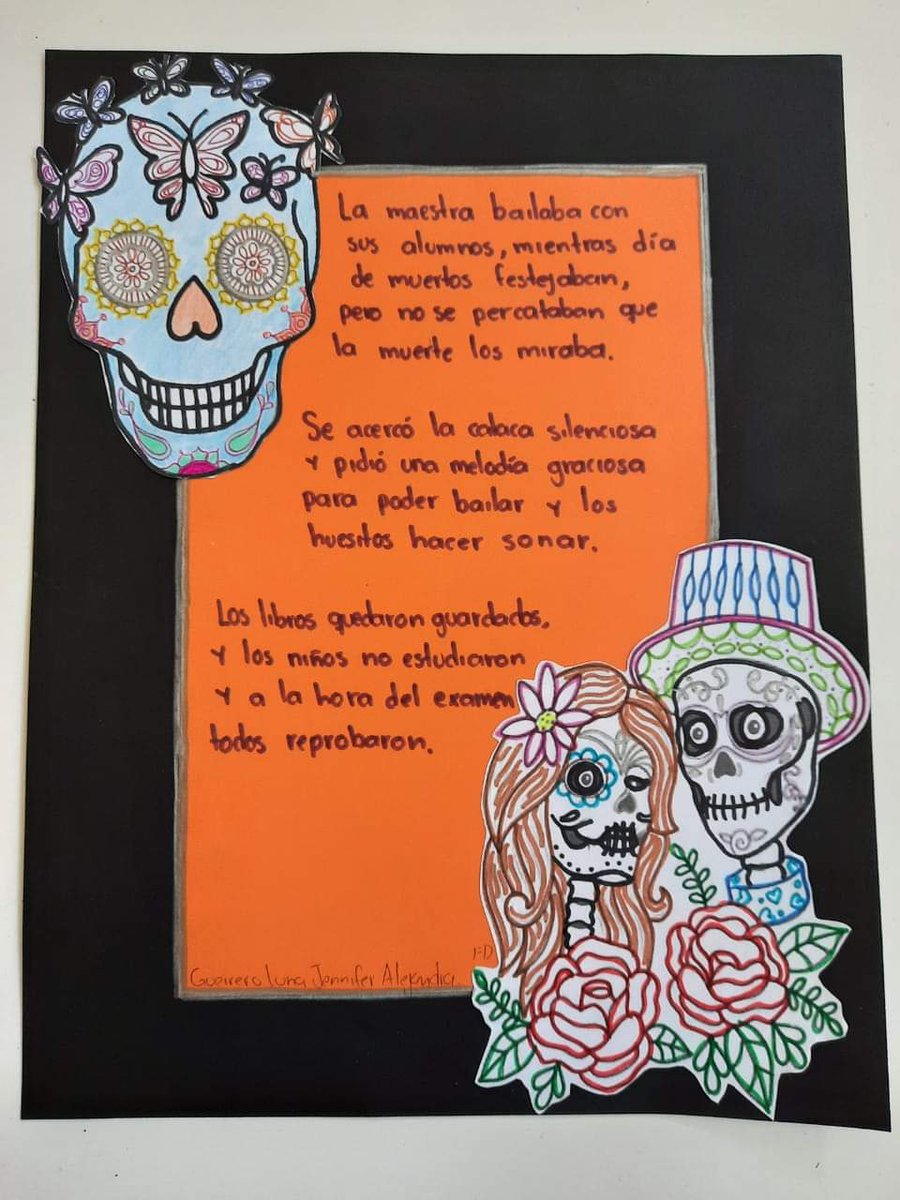 La maestra bailaba con
sus alumnos, mientras día
de muertos festejaban,
pero no se percataban que
la muerte los miraba.
Se acercó la calaca silenciosa
y pidió una melodía graciosa
para poder bailar y los
huesitos hacer sonar.
Los libros quedaron guardados,
y los niños no estudiaron
y a la hora del examen
todos reprobaron.
Guerrero Luna Jennifer Alejandra